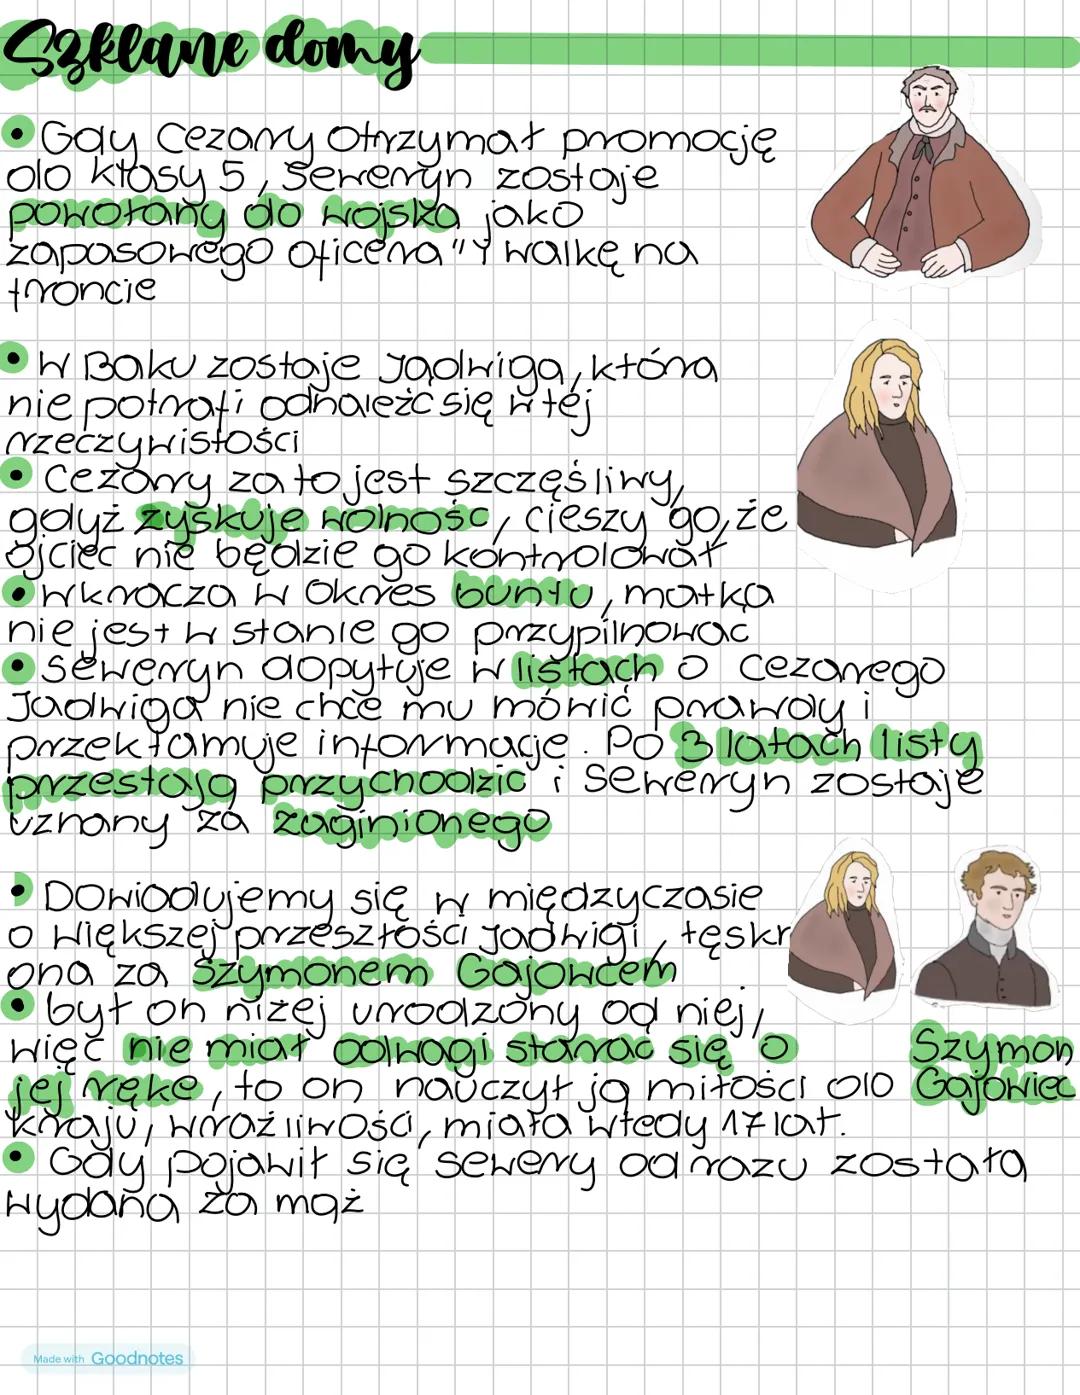 Szklane domy
• Gdy Cezary otrzymał promocję
do klasy 5, Seweryn zostaje
powołany do wojska jako
zapasowego oficera "Y walkę na
froncie
• W Baku zostaje Jadwiga, która
nie potrafi odnaleźć się w tej
rzeczywistości
• Cezary za to jest szczęśliwy,
gdyż zyskuje wolność, cieszy go, że
ojciec nie będzie go kontrolował
• wkracza w okres buntu, matka
nie jest w stanie go przypilnować
• Seweryn dopytuje w listach o Cezarego
Jadwiga nie chce mu mówić prawdy i
przekłamuje informacje. Po 3 latach listy
przestają przychodzić i Seweryn zostaje
uznany za zaginionego
• Dowiadujemy się w międzyczasie
o większej przeszłości Jadwigi, tęskn
ona za Szymonem Gajowcem
• był on niżej urodzony od niej,
więc nie miał odwagi starać się o
jej rękę, to on nauczył ją miłości do
kraju, wrażliwości, miała wtedy 17 lat.
Szymon
Gajowiec
• Gdy pojawił się sewery od razu została
wydana za mąż
Made with Goodnotes